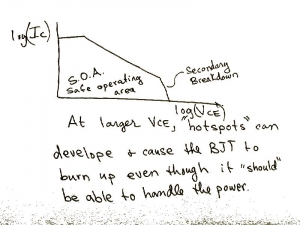 log(Ic)
Secondary
Breakdown
S.O.A.
safe operating
area
log(VCE)
At larger VCE, "hotspots" can
develope & cause the BJT to
burn up even though it "should"
be able to handle the power.